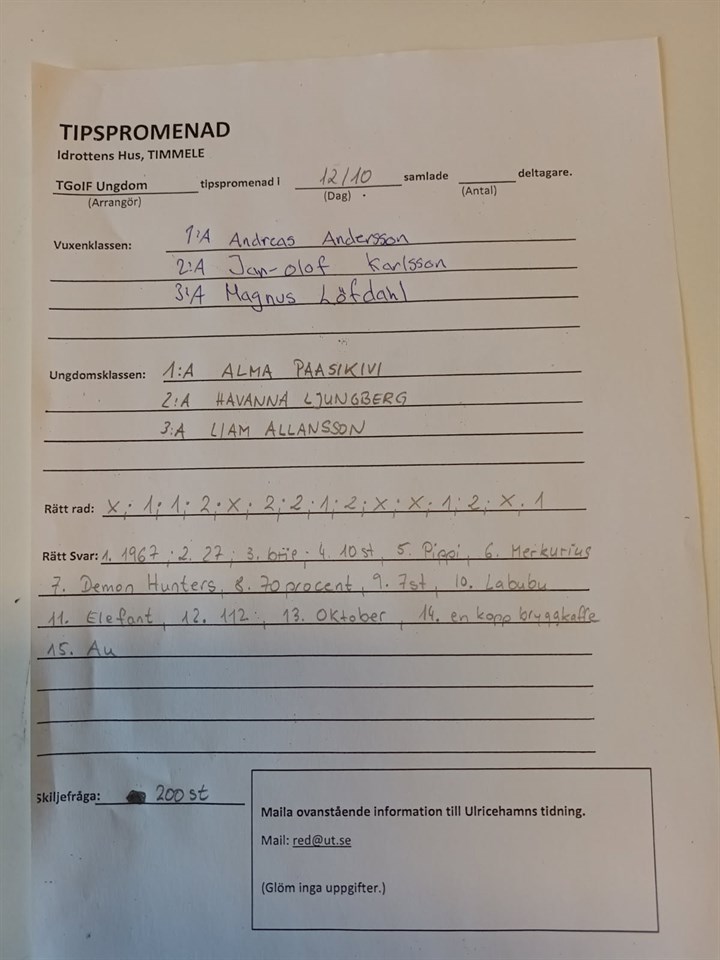 TIPSPROMENAD
Idrottens Hus, TIMMELE
TGoIF Ungdom tipspromenad I 12/10 samlade deltagare.
(Arrangör) (Dag) (Antal)
Vuxenklassen: 1:A Andreas Andersson
2:A Jan-olof Karlsson
3:A Magnus Löfdahl
Ungdomsklassen: 1:A ALMA PAASIKIVI
2:A HAVANNA LJUNGBERG
3:A LIAM ALLANSSON
Rätt rad: X; 1; 1; 2; X; 2; 2; 1; 2; X; X; 1; 2; X; 1
Rätt Svar: 1. 1967; 2. 27; 3. brie; 4. 10 st, 5. Pippi, 6. Merkurius
7. Demon Hunters, 8. 70 procent, 9. 7st, 10. Labubu
11. Elefant, 12. 112, 13. Oktober, 14. en kopp bryggkaffe
15. Au
Skiljefråga: 200 st
Maila ovanstående information till Ulricehamns tidning.
Mail: red@ut.se
(Glöm inga uppgifter.)